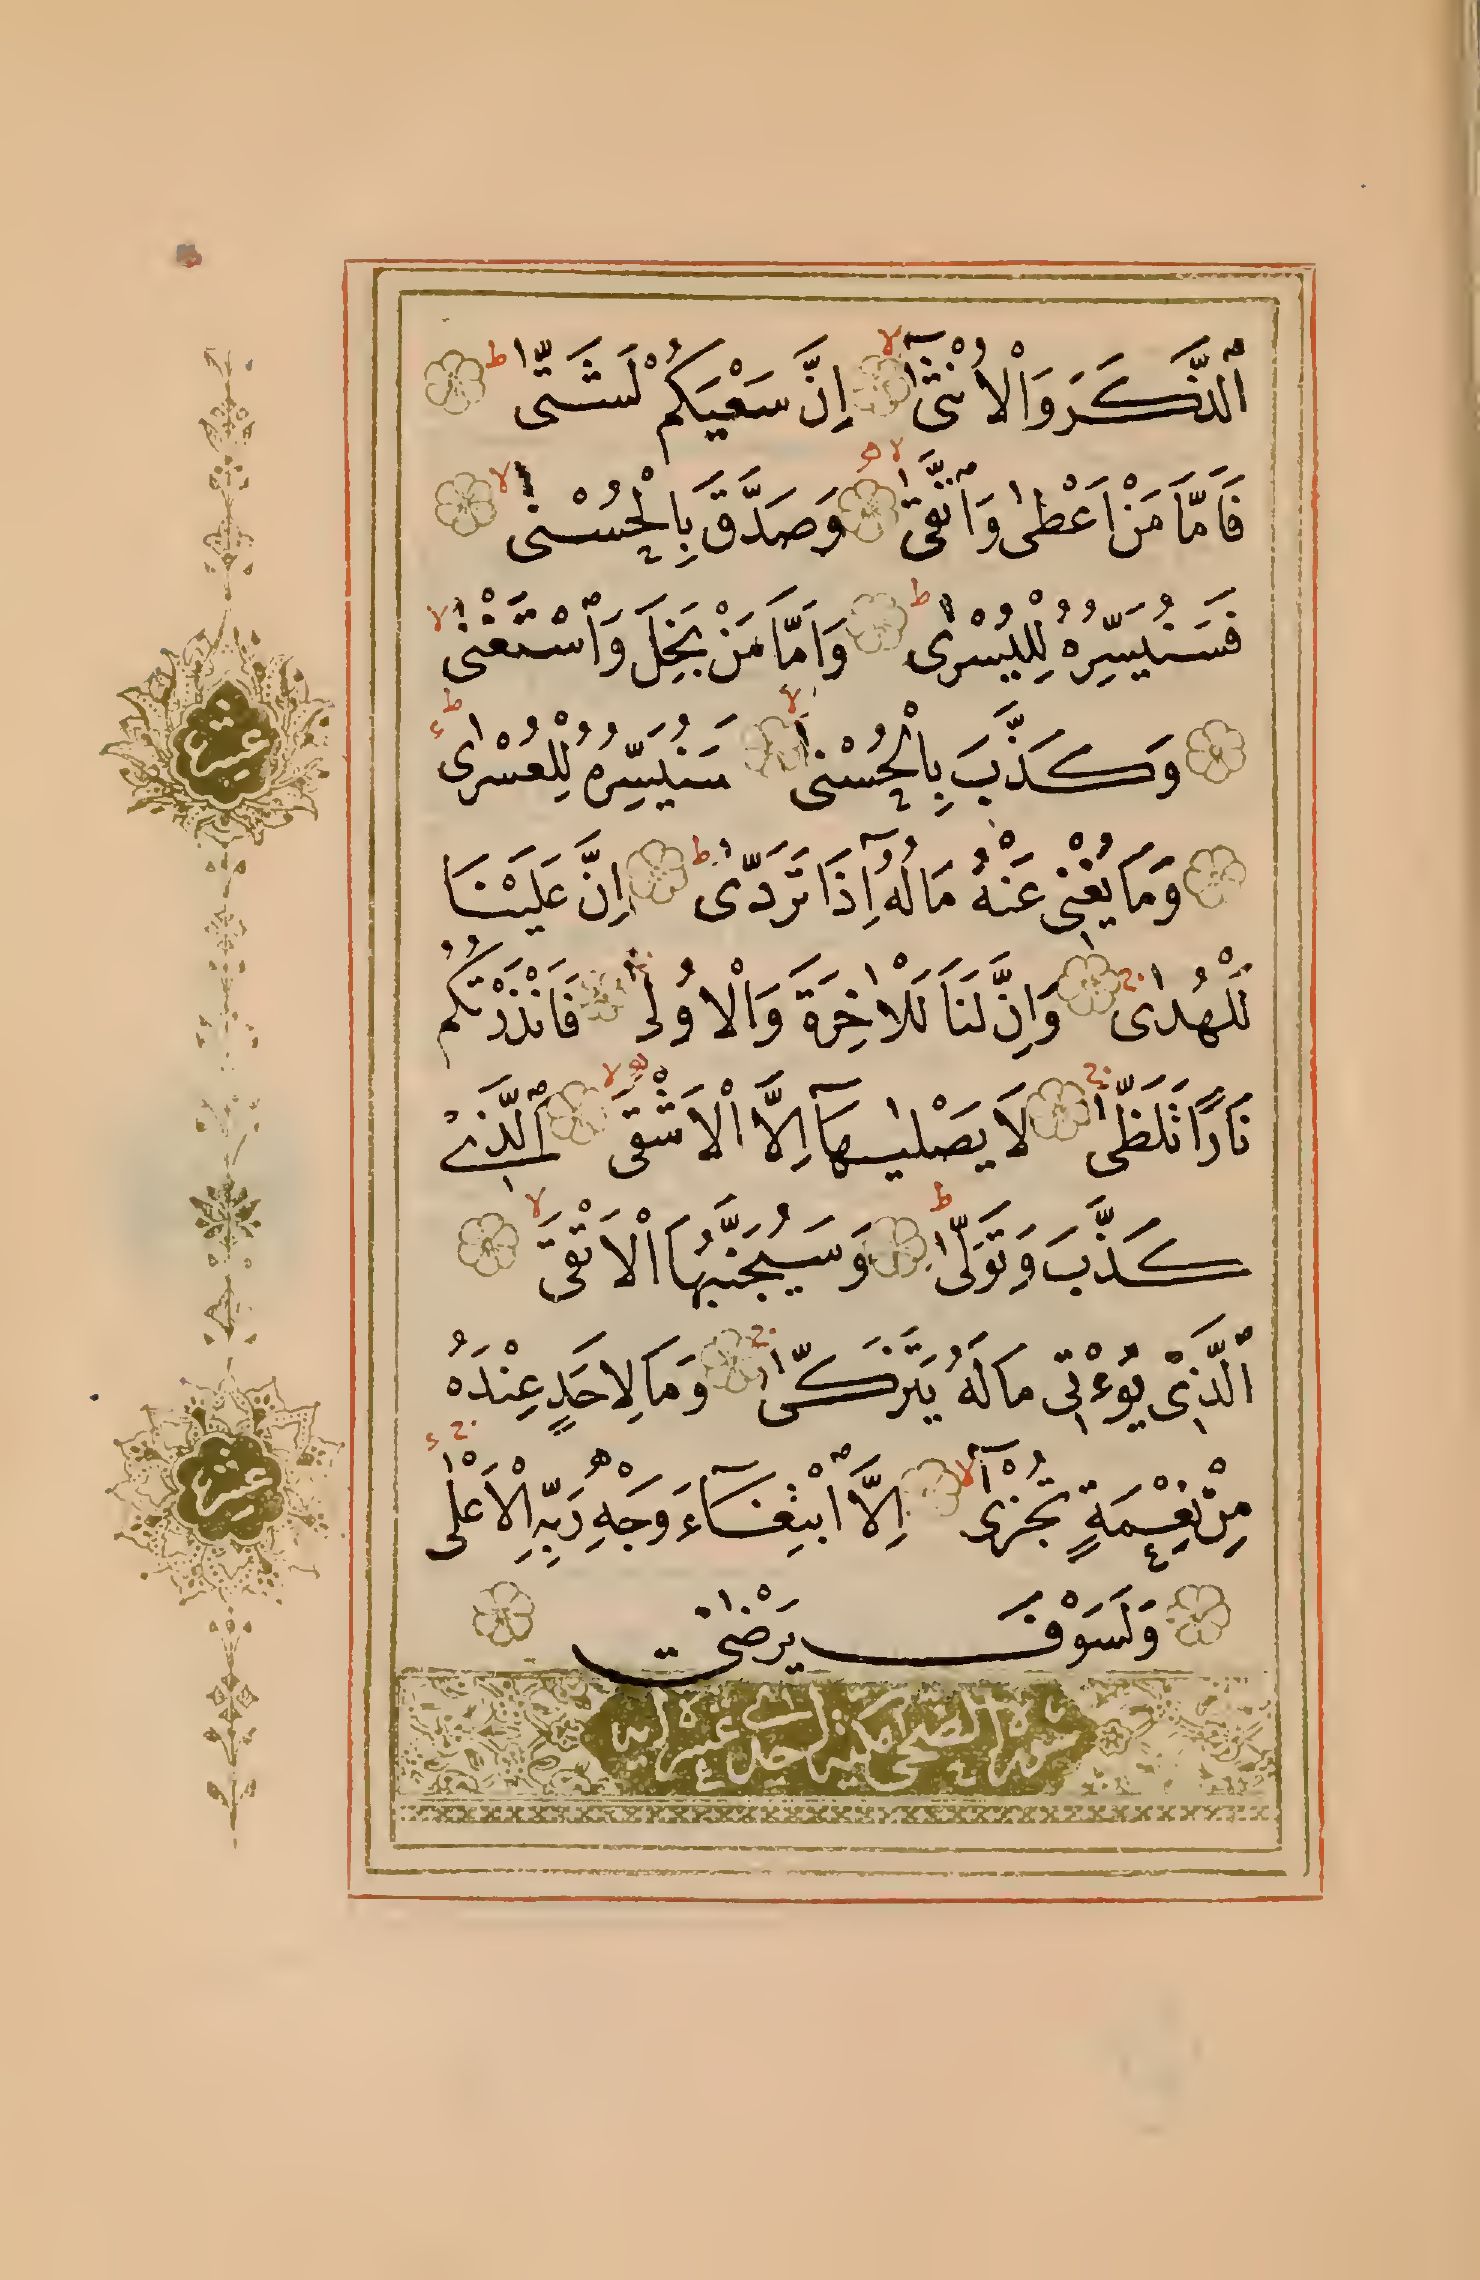 الذَّكَرَ وَالْاُنْثٰىٓ اِنَّ سَعْيَكُمْ لَشَتّٰى
فَاَمَّا مَنْ اَعْطٰى وَاتَّقٰى وَصَدَّقَ بِالْحُسْنٰى
فَسَنُيَسِّرُهُ لِلْيُسْرٰى وَاَمَّا مَنْ بَخِلَ وَاسْتَغْنٰى
وَكَذَّبَ بِالْحُسْنٰى سَنُيَسِّرُهُ لِلْعُسْرٰى
وَمَا يُغْنِى عَنْهُ مَالُهُٓ اِذَا تَرَدّٰى اِنَّ عَلَيْنَا
لَلْهُدٰى وَاِنَّ لَنَا لَلْاٰخِرَةَ وَالْاُولٰى فَاَنْذَرْتُكُمْ
نَارًا تَلَظّٰى لَا يَصْلٰيهَٓا اِلَّا الْاَشْقَى الَّذِى
كَذَّبَ وَتَوَلّٰى وَسَيُجَنَّبُهَا الْاَتْقَى
الَّذِى يُوءْتِى مَالَهُ يَتَزَكّٰى وَمَا لِاَحَدٍ عِنْدَهُ
مِنْ نِعْمَةٍ تُجْزٰىٓ اِلَّا ابْتِغَٓاءَ وَجْهِ رَبِّهِ الْاَعْلٰى
وَلَسَوْفَ يَرْضٰى
سورة الضحى مكية احدى عشرة اية
عشر
عشر